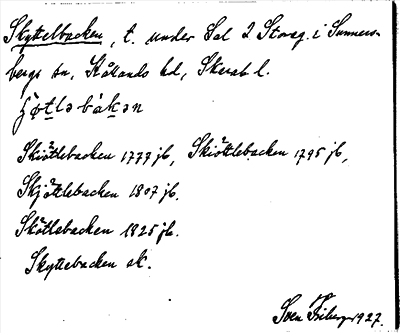 Skyttelbacken, t. under Sal 2 Storeg. i Sunners-
bergs sn, Kållands hd, Skarab. l.
ʃøtləbákən
Skiöttlebacken 1777 jb, Skiöttlebacken 1795 jb,
Skjöttlebacken 1807 jb.
Skötlebacken 1825 jb.
Skyttebacken ek.
Sven Friberg 1927.